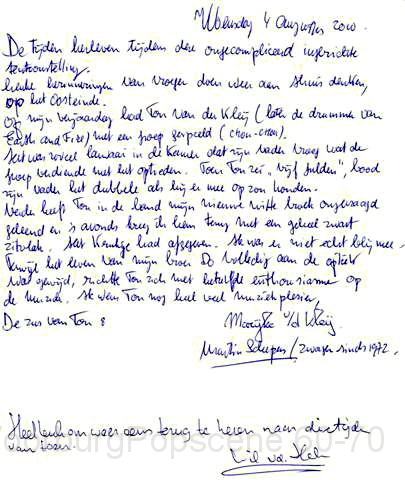 Woensdag 4 Augustus 2010.
De tijden herleven tijdens deze ongecompliceerd ingerichte
tentoonstelling.
Leuke herinneringen van vroeger doen weer aan thuis denken,
op het Oosteinde.
Op mijn verjaardag had Ton van der Kleij (later de drummer van
Earth and Fire) met een groep gespeeld (chou-chou).
Het was zoveel lawaai in de kamer dat mijn vader vroeg wat de
groep verdiende met het optreden. Toen Ton zei, "vijf gulden", bood
mijn vader het dubbele als hij er mee op zou houden.
Verder heeft Ton in de band mijn nieuwe witte broek ongevraagd
geleend en 's avonds kreeg ik hem terug met een geheel zwart
zitvlak. Het krukje had afgegeven. Ik was er niet echt blij mee.
Terwijl het leven van mijn broer volledig aan de
was gewijd, richtte Ton zich met hetzelfde enthousiasme op
de muziek. Ik wens Ton nog heel veel muziek plezier,
De zus van Ton
Marijke v/d Kleij.
Martin Schepen / zwager sinds 1972.
Heel leuk om weer eens terug te keren naar die tijden
van toen.
Popscene 60-70